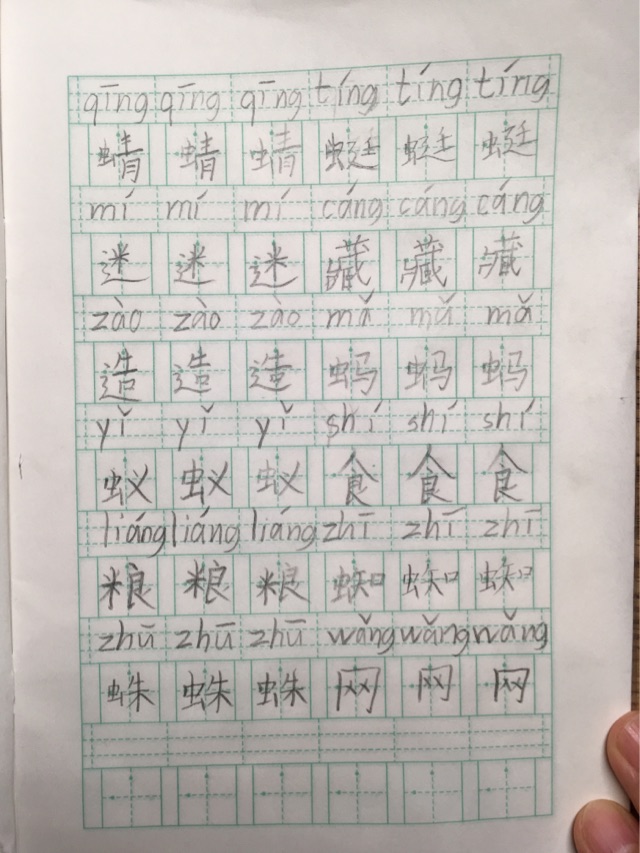 qīng qīng qīng tíng tíng tíng
蜻 蜻 蜻 蜓 蜓 蜓
mí mí mí cáng cáng cáng
迷 迷 迷 藏 藏 藏
zào zào zào mǎ mǎ mǎ
造 造 造 蚂 蚂 蚂
yǐ yǐ yǐ shí shí shí
蚁 蚁 蚁 食 食 食
liáng liáng liáng zhī zhī zhī
粮 粮 粮 蜘 蜘 蜘
zhū zhū zhū wǎng wǎng wǎng
蛛 蛛 蛛 网 网 网